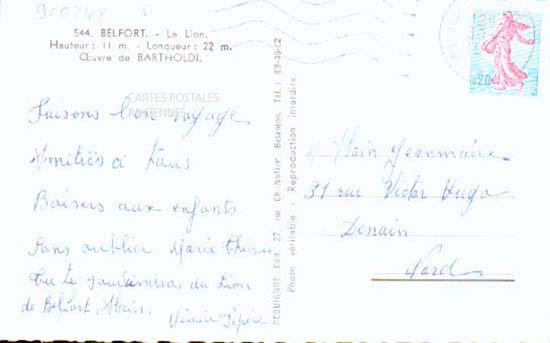 900248
544. BELFORT. - Le Lion.
Hauteur : 11 m. - Longueur : 22 m.
Œuvre de BARTHOLDI.
0,20
CARTES POSTALES
ANCIENNES
Faisons bon voyage
Amitiés à tous
Baisers aux enfants
Sans oublier Marie Thérèse
Tu te souviendras du Lion
de Belfort, Alain.
PEQUIGNOT Edit. 27, rue Ch. Nodier, Besançon. Tél. : 83-46-62
Photo véritable - Reproduction interdite.
M Alain Jeanmaire
31 rue Victor Hugo
Denain
Nord